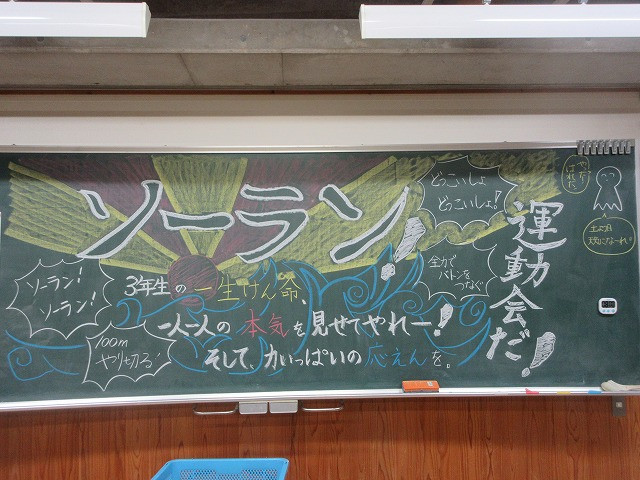 ソーラン!
どっこいしょ
どっこいしょ!
運動会だ!
やったー
はれだ
土よう日
ソーラン!
ソーラン!
全力で
バトンを
つなぐ
3年生の一生けん命、
一人一人の本気を見せてやれー!
そして、力いっぱいの応えんを。
100m
やり切る!